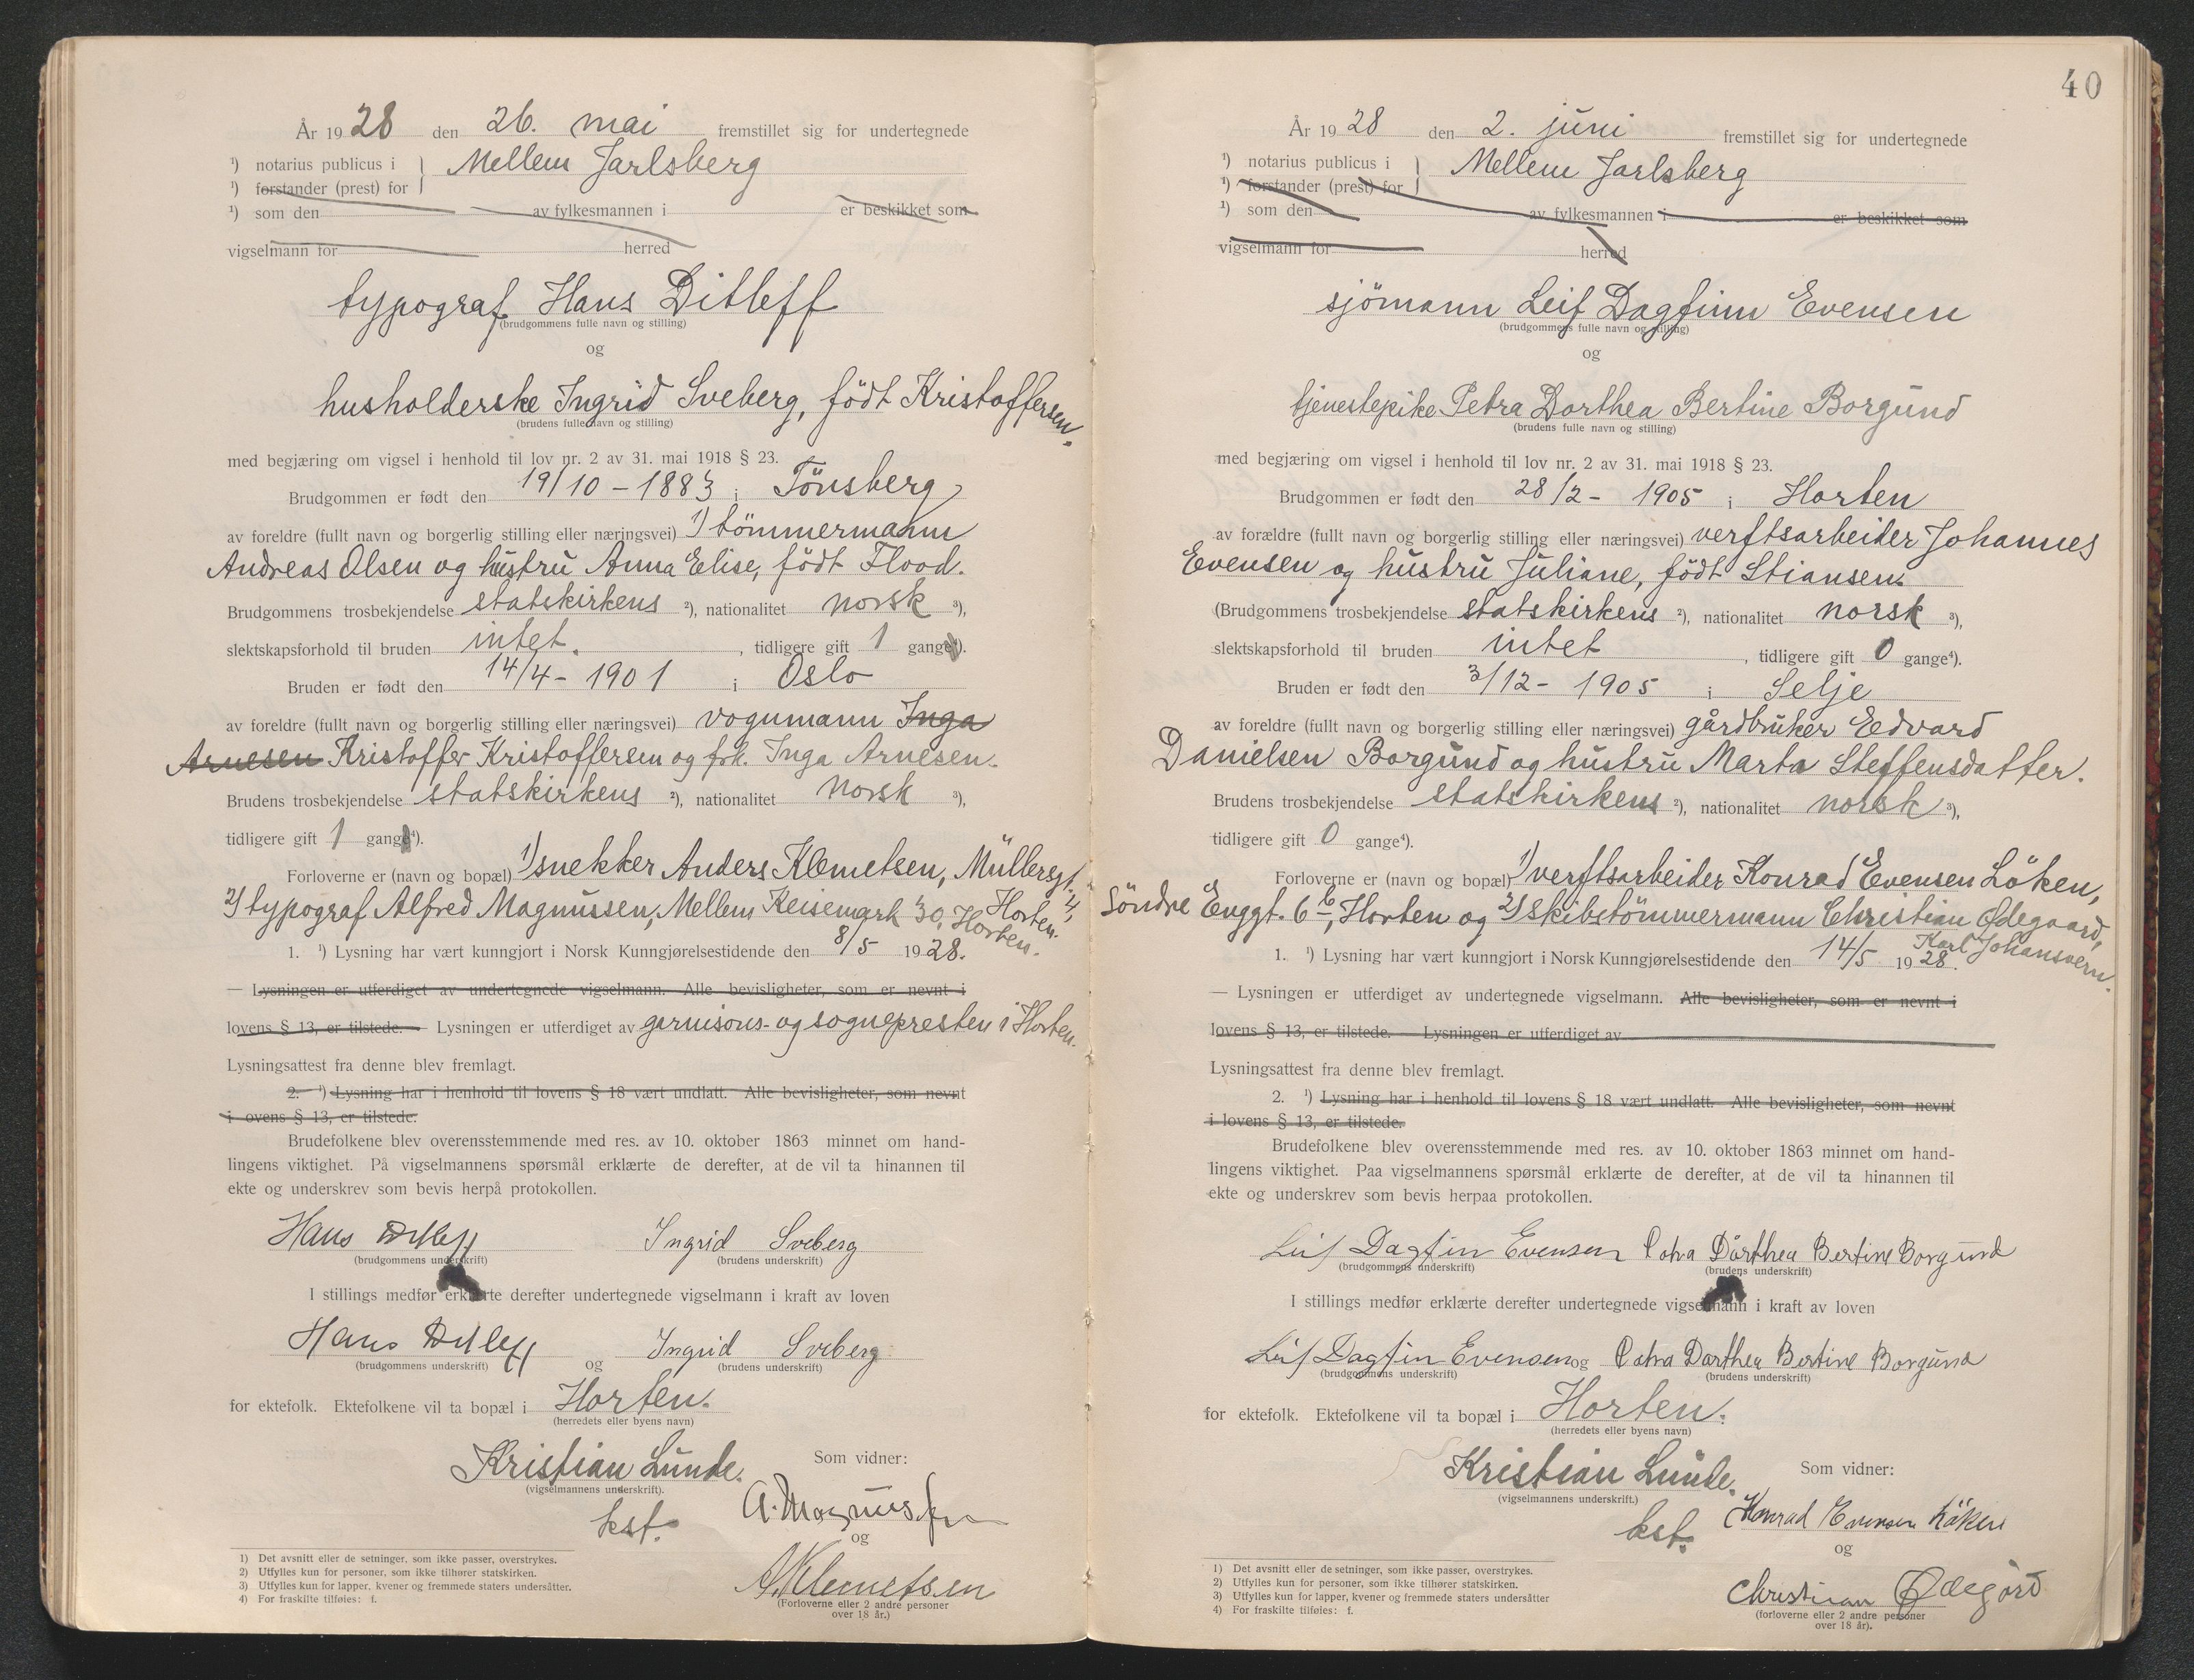 År 1928 den 26. mai fremstillet sig for undertegnede
¹) notarius publicus i } Mellem Jarlsberg
¹) forstander (prest) for
¹) som den av fylkesmannen i er beskikket som
vigselmann for herred
typograf Hans Ditleff
(brudgommens fulle navn og stilling)
og
husholderske Ingrid Sveberg, födt Kristoffersen.
(brudens fulle navn og stilling)
med begjæring om vigsel i henhold til lov nr. 2 av 31. mai 1918 § 23.
Brudgommen er født den 19/10 - 1883 i Tönsberg
av foreldre (fullt navn og borgerlig stilling eller næringsvei) ¹) tömmermann
Andreas Olsen og hustru Anna Elise, födt Flood.
Brudgommens trosbekjendelse statskirkens ²), nationalitet norsk ³),
slektskapsforhold til bruden intet. , tidligere gift 1 gange⁴).
Bruden er født den 14/4 - 1901 i Oslo
av foreldre (fullt navn og borgerlig stilling eller næringsvei) vognmann Inga
Arnesen Kristoffer Kristoffersen og frk. Inga Arnesen.
Brudens trosbekjendelse statskirkens ²), nationalitet norsk ³),
tidligere gift 1 gange⁴).
Forloverne er (navn og bopæl) 1) snekker Anders Klemetsen, Müllersgt. 4,
Horten.
2) typograf Alfred Magnussen, Mellem Keisemark 30, Horten.
1. ¹) Lysning har vært kunngjort i Norsk Kunngjørelsestidende den 8/5 1928.
— Lysningen er utferdiget av undertegnede vigselmann. Alle bevisligheter, som er nevnt i
lovens § 13, er tilstede. — Lysningen er utferdiget av garnisons- og sognepresten i Horten.
Lysningsattest fra denne blev fremlagt.
2. ¹) Lysning har i henhold til lovens § 18 vært undlatt. Alle bevisligheter, som nevnt
i ovens § 13, er tilstede.
Brudefolkene blev overensstemmende med res. av 10. oktober 1863 minnet om hand-
lingens viktighet. På vigselmannens spørsmål erklærte de derefter, at de vil ta hinannen til
ekte og underskrev som bevis herpå protokollen.
Hans Ditleff Ingrid Sveberg
(brudgommens underskrift) (brudens underskrift)
I stillings medfør erklærte derefter undertegnede vigselmann i kraft av loven
Hans Ditleff og Ingrid Sveberg
(brudgommens underskrift) (brudens underskrift)
for ektefolk. Ektefolkene vil ta bopæl i Horten.
(herredets eller byens navn)
Kristian Lunde. Som vidner:
(vigselmannens underskrift).
kst. A. Magnussen
og
A. Klemetsen
(Forloverne eller 2 andre personer
over 18 år.)
1) Det avsnitt eller de setninger, som ikke passer, overstrykes.
2) Utfylles kun for personer, som ikke tilhører statskirken.
3) Utfylles kun for lapper, kvener og fremmede staters undersåtter.
4) For fraskilte tilføies: f.
40
År 1928 den 2. juni fremstillet sig for undertegnede
¹) notarius publicus i } Mellem Jarlsberg
¹) forstander (prest) for
¹) som den av fylkesmannen i er beskikket som
vigselmann for herred
sjömann Leif Dagfinn Evensen
(brudgommens fulle navn og stilling)
og
tjenestepike Petra Dorthea Bertine Borgund
(brudens fulle navn og stilling)
med begjæring om vigsel i henhold til lov nr. 2 av 31. mai 1918 § 23.
Brudgommen er født den 28/2 - 1905 i Horten
av forældre (fullt navn og borgerlig stilling eller næringsvei) verftsarbeider Johannes
Evensen og hustru Juliane, födt Stiansen.
(Brudgommens trosbekjendelse statskirkens ²), nationalitet norsk ³),
slektskapsforhold til bruden intet , tidligere gift 0 gange⁴).
Bruden er født den 3/12 - 1905 i Selje
av foreldre (fullt navn og borgerlig stilling eller næringsvei) gårdbruker Edvard
Danielsen Borgund og hustru Marta Steffensdatter.
Brudens trosbekjendelse statskirkens ²), nationalitet norsk ³),
tidligere gift 0 gange⁴).
Forloverne er (navn og bopæl) 1) verftsarbeider Konrad Evensen Löken,
Söndre Enggt. 6 b, Horten og 2) skibstömmermann Christian Ødegaard,
Karl Johansvern.
1. ¹) Lysning har vært kunngjort i Norsk Kunngjørelsestidende den 14/5 1928.
— Lysningen er utferdiget av undertegnede vigselmann. Alle bevisligheter, som er nevnt i
lovens § 13, er tilstede. — Lysningen er utferdiget av
Lysningsattest fra denne blev fremlagt.
2. ¹) Lysning har i henhold til lovens § 18 vært undlatt. Alle bevisligheter, som nevnt
i lovens § 13, er tilstede.
Brudefolkene blev overensstemmende med res. av 10. oktober 1863 minnet om hand-
lingens viktighet. Paa vigselmannens spørsmål erklærte de derefter, at de vil ta hinannen til
ekte og underskrev som bevis herpaa protokollen.
Leif Dagfin Evensen Petra Dorthea Bertine Borgund
(brudgommens underskrift) (brudens underskrift)
I stillings medfør erklærte derefter undertegnede vigselmann i kraft av loven
Leif Dagfin Evensen og Petra Dorthea Bertine Borgund
(brudgommens underskrift) (brudens underskrift)
for ektefolk. Ektefolkene vil ta bopæl i Horten.
(herredets eller byens navn)
Kristian Lunde. Som vidner:
(vigselmannens underskrift.)
kst. Konrad Evensen Löken
og
Christian Ødegård
(forloverne eller 2 andre personer
over 18 år).
1) Det avsnitt eller de setninger, som ikke passer, overstrykes.
2) Utfylles kun for personer, som ikke tilhører statskirken.
3) Utfylles kun for lapper, kvener og fremmede staters undersåtter
4) For fraskilte tilføies: f.